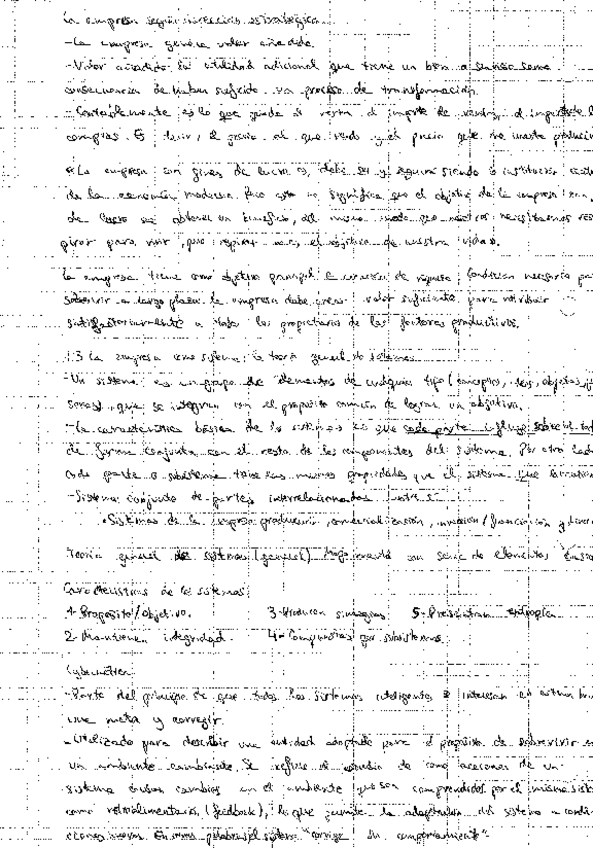 La empresa según dirección estratégica
-La empresa genera valor añadido.
-Valor añadido: la utilidad adicional que tiene un bien o servicio como
consecuencia de haber sufrido un proceso de transformación.
-Contablemente es lo que queda si resta el importe de ventas, el importe
compras. Es decir, el precio al que vendo y el precio que me cuesta producir
*La empresa con fines de lucro es, debe ser y seguirá siendo la institución
de la economía moderna. Pero esto no significa que el objetivo de la empresa
de lucro sea obtener un beneficio, del mismo modo que nosotros necesitamos
para vivir, que respirar no es el objetivo de nuestra vida.
La empresa tiene como objetivo principal la creación de riqueza, condición necesaria para
sobrevivir a largo plazo. La empresa debe crear valor suficiente para retribuir
satisfactoriamente a todos los propietarios de los factores productivos.
1.3 La empresa como sistema: la teoría general de sistemas
-Un sistema es un grupo de elementos de cualquier tipo (conceptos, objetos,
que se integran con el propósito común de lograr un objetivo.
-La característica básica de los sistemas es que cada parte influye sobre el
de forma conjunta con el resto de los componentes del sistema. Por otro lado
cada parte o subsistema tiene las mismas propiedades que el sistema que
-Sistema: conjunto de partes interrelacionadas entre sí
•Sistemas de la empresa: producción, comercialización, inversión/financiación y
Teoría general de sistemas (general) una serie de elementos
Características de los sistemas:
1-Propósito/objetivo. 3-Producen sinergias 5-Presentan entropía
2-Mantienen integridad. 4-Compuestos por subsistemas
Cibernética
-Parte del principio de que todos los sistemas inteligentes
una meta y corregir.
-Utilizado para describir una entidad adaptada para el propósito de sobrevivir en
un ambiente cambiante. Se refiere al estudio de como acciones de un
sistema causan cambios en el ambiente que son comprendidos por el mismo
como retroalimentación (feedback), lo que permite la adaptación del sistema a
ciones nuevas. En otras palabras, el sistema "corrige su comportamiento".